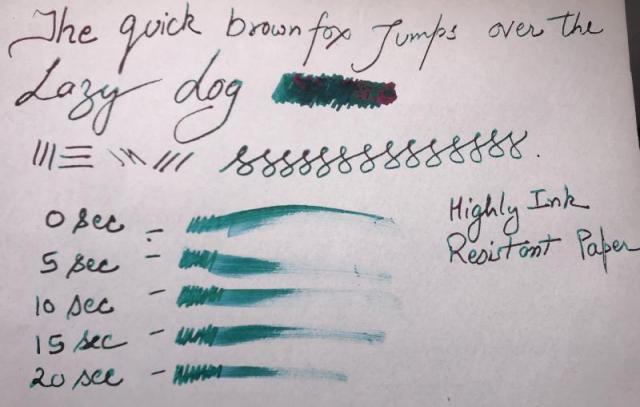 The quick brown fox Jumps over the
Lazy dog
0 sec -
5 sec -
10 sec -
15 sec -
20 sec -
Highly Ink
Resistant Paper